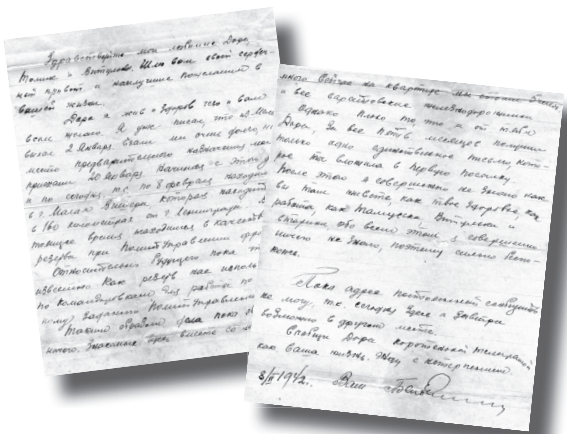 Здравствуйте мои любимые Дора,
Толик и Витулька. Шлю вам свой сердеч-
ный привет и наилучшие пожелания в
вашей жизни.
Дора я жив и здоров чего и вам
всем желаю. Я уже писал, что из
выехал 2 января ехали мы очень долго, на
место предварительного назначения мы
приехали 20 января. Начиная с этого
и по сегодня т.е. по 8 февраля нахожусь
в г. Малая Вишера которая находится
в 160 километрах от г. Ленинграда. В
текущее время нахожусь в качестве
резерва при Политуправлении
Относительно будущего пока не
известно. Как резерв нас
по командировкам для работы по
заданию Политуправления
Таким образом дела пока
много. Знакомые здесь вместе со
много сейчас на квартире мы
и все железнодорожники
Однако плохо то, что я от тебя
Дора, за все месяцев получил
только одно единственное письмо, кото-
рое ты вложила в первую посылку.
После этого я совершенно не знаю как
вы там живете, как твое здоровье, как
работа, как Витулька и
обо всем этом я совершенно
ничего не знаю, поэтому сильно
Пока адреса постоянного сообщить
не могу, т.к. сегодня здесь а завтра
возможно в другом месте.
Сообщи Дора коротенькой телеграммой
как ваша жизнь. Жду с нетерпением.
8/II 1942. Ваш